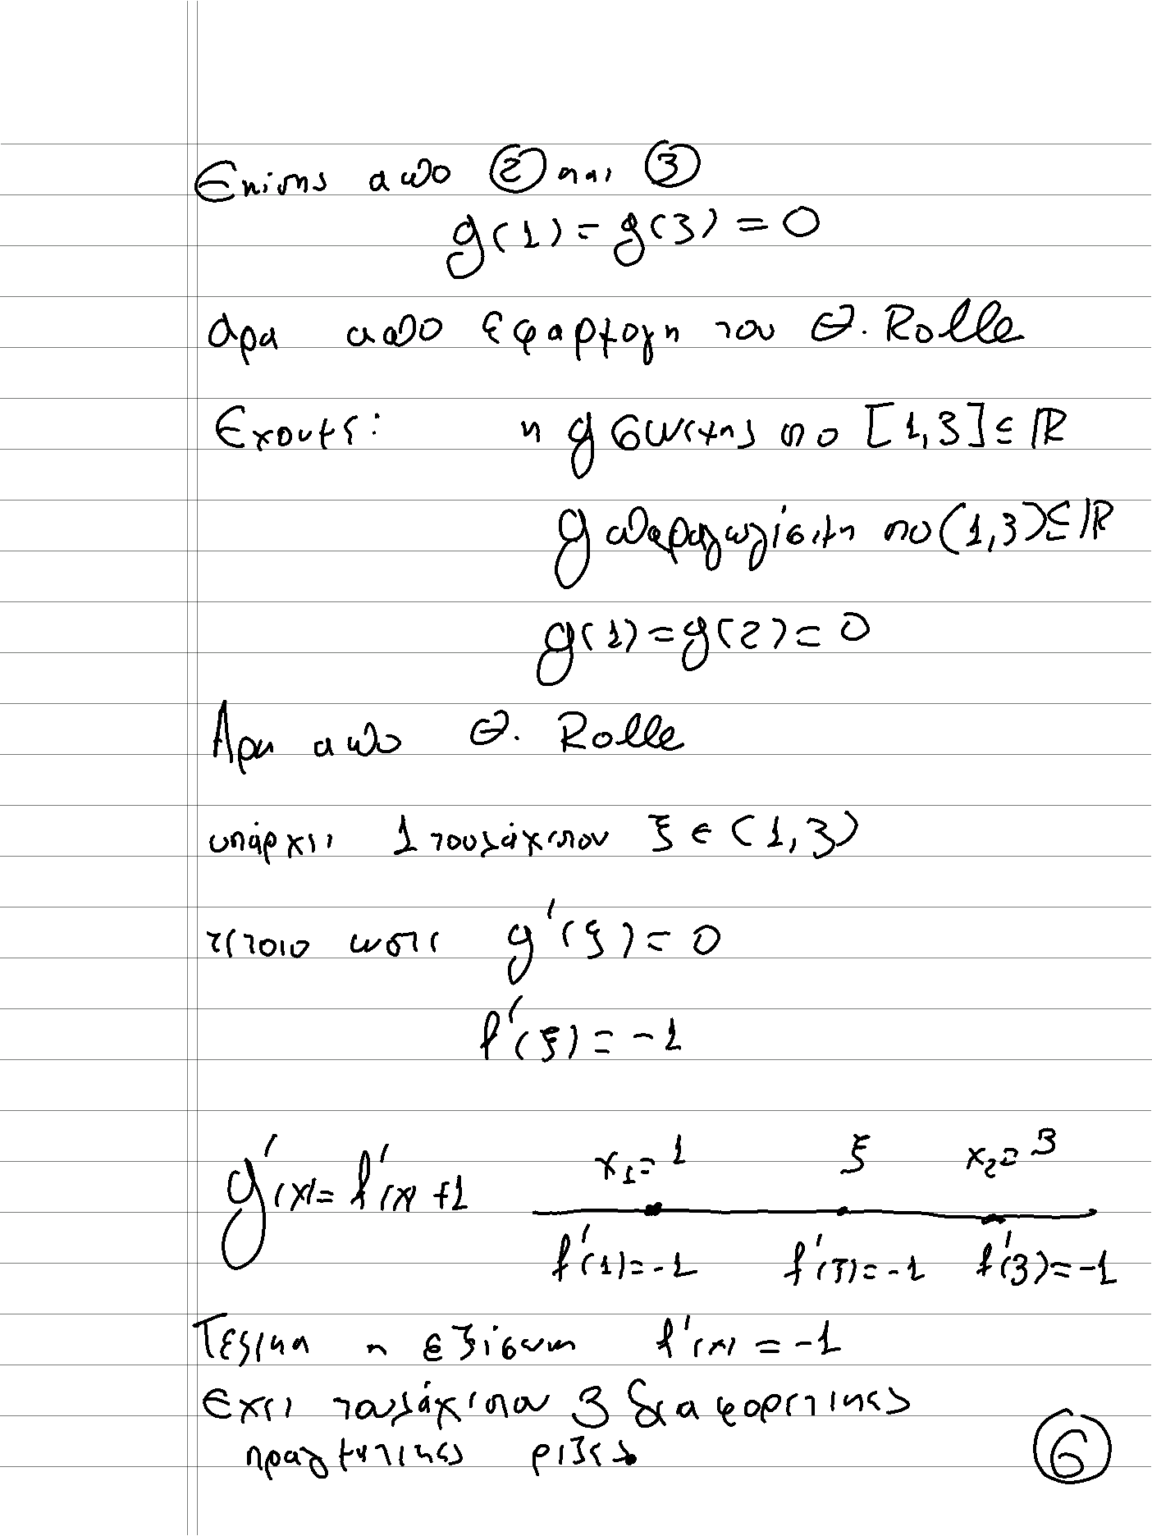 Επισης απο ② και ③
g(1) = g(3) = 0
αρα απο εφαρμογη του Θ. Rolle
Εχουμε: η g συνεχης στο [1,3] ⊆ ℝ
g παραγωγίσιμη στο (1,3) ⊆ ℝ
g(1) = g(2) = 0
Αρα απο Θ. Rolle
υπάρχει 1 τουλάχιστον ξ ∈ (1,3)
τετοιο ωστε g'(ξ) = 0
f'(ξ) = -1
x₁ = 1 ξ x₂ = 3
g'(x) = f'(x) + 1
f'(1) = -1 f'(ξ) = -1 f'(3) = -1
Τελικα η εξίσωση f'(x) = -1
Εχει τουλάχιστον 3 διαφορετικες
πραγματικες ριζες.
⑥